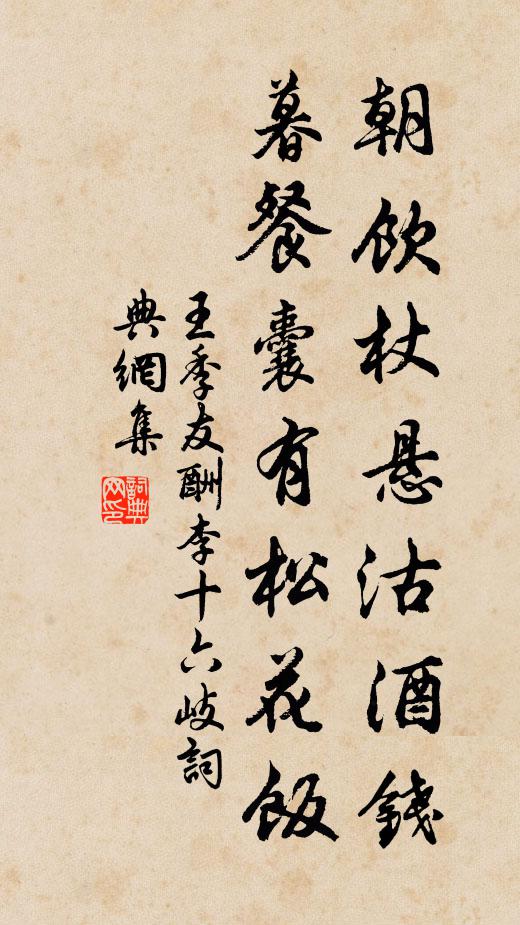 朝飲杖悬沽酒錢
暮餐囊有松花飯
王季友酬李十六岐詞
典網集
詞典網印